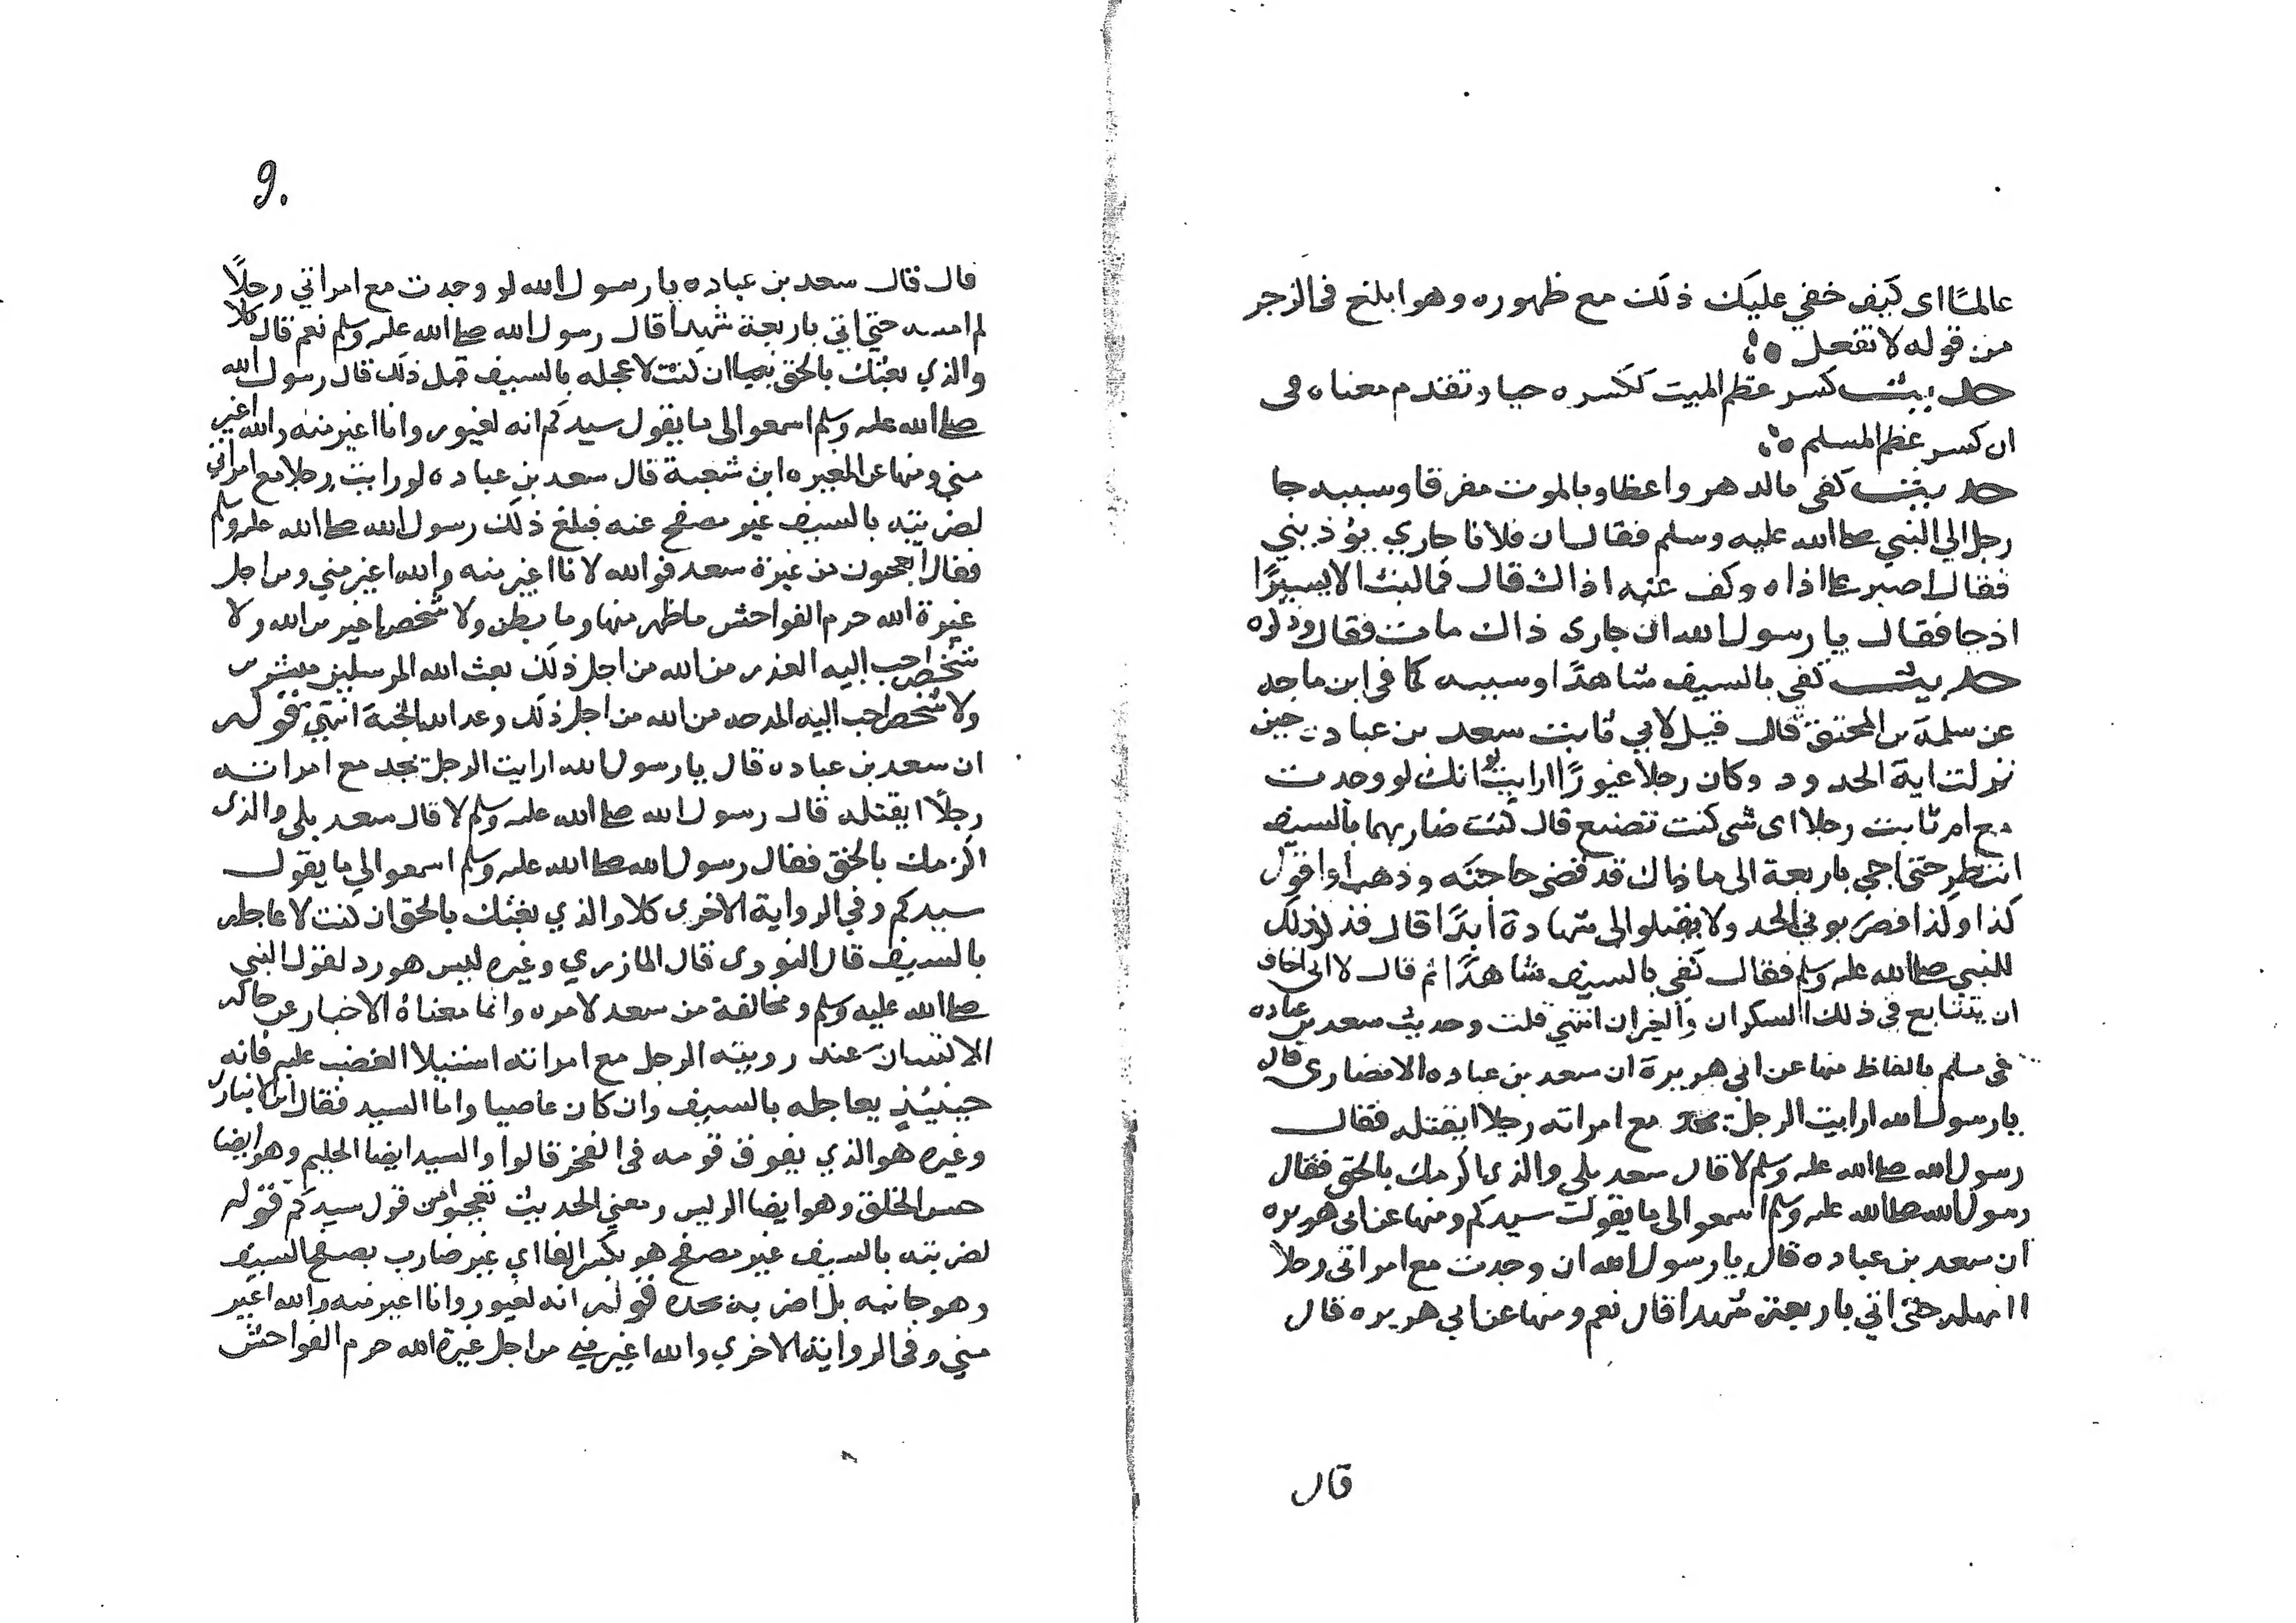 عالمًا اى كيف خفي عليك ذلك مع ظهوره وهو ابلغ فى الزجر
من قوله لا تفعل
حديث كسر عظم الميت ككسره حيا وتقدم معناه فى
ان كسر عظم المسلم
حديث كفى بالدهر واعظا وبالموت مفرقا وسببه جا
رجل الي النبي صلى الله عليه وسلم فقال ان فلانا جاري يؤذيني
فقال اصبر على اذاه وكف عنه اذاك قال فما لبث الا يسيرًا
اذ جا فقال يا رسول الله ان جارى ذاك مات فقال وذكره
حديث كفي بالسيف شاهدًا وسببه كما فى ابن ماجه
عن سلمة بن المحبق قال قيل لابي ثابت سعد بن عبادة حين
نزلت اية الحدود وكان رجلا غيورًا ارايت لو انك لو وجدت
مع ام ثابت رجلا اى شى كنت تصنع قال كنت ضاربهما بالسيف
انتظر حتى اجي باربعة الى ما ذاك قد قضى حاجته وذهب او اقول
كذا وكذا فضربوني الحد ولا يقبلوا لى شهادة أبدًا قال فذكر ذلك
للنبى صلى الله عليه وسلم فقال كفى بالسيف شاهدًا ثم قال لا انى اخاف
ان يتتابع فى ذلك السكران والغيران انتهي قلت وحديث سعد بن عباده
فى مسلم بالفاظ منها عن ابي هريرة ان سعد بن عباده الانصارى قال
يا رسول الله ارايت الرجل يجد مع امراته رجلا ايقتله فقال
رسول الله صلى الله عليه وسلم لا قال سعد بلي والذى اكرمك بالحق فقال
رسول الله صلى الله عليه وسلم اسمعوا الى ما يقول سيدكم ومنها عن ابى هريره
ان سعد بن عباده قال يا رسول الله ان وجدت مع امراتى رجلا
اامهله حتى اتي باربعة شهدا قال نعم ومنها عن ابي هريره قال
قال
٩٠
قال قال سعد بن عباده يا رسول الله لو وجدت مع امراتي رجلًا
لم امسه حتي اتي باربعة شهدا قال رسول الله صلى الله عليه وسلم نعم قال كلا
والذي بعثك بالحق ان كنت لاعجله بالسيف قبل ذلك قال رسول الله
صلى الله عليه وسلم اسمعوا الى ما يقول سيدكم انه لغيور وانا اغير منه والله اغير
مني ومنها عن المغيره ابن شعبة قال سعد بن عباده لو رايت رجلا مع امراتي
لضربته بالسيف غير مصفح عنه فبلغ ذلك رسول الله صلى الله عليه وسلم
فقال اتعجبون من غيرة سعد فوالله لانا اغير منه والله اغير مني ومن اجل
غيرة الله حرم الفواحش ما ظهر منها وما بطن ولا شخص اغير من الله ولا
شخص احب اليه العذر من الله من اجل ذلك بعث الله المرسلين مبشرين
ولا شخص احب اليه المدحه من الله من اجل ذلك وعد الله الجنة انتهي قوله
ان سعد بن عباده قال يا رسول الله ارايت الرجل يجد مع امراته
رجلًا ايقتله قال رسول الله صلى الله عليه وسلم لا قال سعد بلى والذى
اكرمك بالحق فقال رسول الله صلى الله عليه وسلم اسمعوا الي ما يقول
سيدكم وفي الرواية الاخرى كلا والذي بعثك بالحق ان كنت لاعاجله
بالسيف قال النووى قال المازري وغيره ليس هو رد لقول النبي
صلى الله عليه وسلم ومخالفة من سعد لامره وانما معناه الاخبار عن حالة
الانسان عند رويته الرجل مع امراته استيلا الغضب عليه فانه
حينئذ يعاجله بالسيف وان كان عاصيا واما السيد فقال ابن الانبار
وغيره هو الذي يفوق قومه فى الفخر قالوا والسيد ايضا الحليم وهو ايضا
حسن الخلق وهو ايضا الريس ومعني الحديث تعجبوا من قول سيدكم قوله
لضربته بالسيف غير مصفح هو بكسر الفا اي غير ضارب بصفح السيف
وهو جانبه بل اضربه بحده قوله انه لغيور وانا اغير منه والله اغير
مني وفى الرواية الاخري والله اغير مني من اجل غيرة الله حرم الفواحش